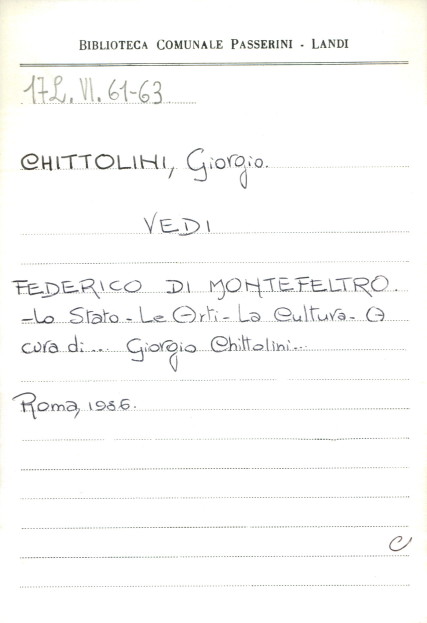 BIBLIOTECA COMUNALE PASSERINI - LANDI
17L. VI. 61-63
CHITTOLINI, Giorgio.
VEDI
FEDERICO DI MONTEFELTRO.
-Lo Stato - Le Arti - La Cultura - A
cura di... Giorgio Chittolini...
Roma, 1986.
C